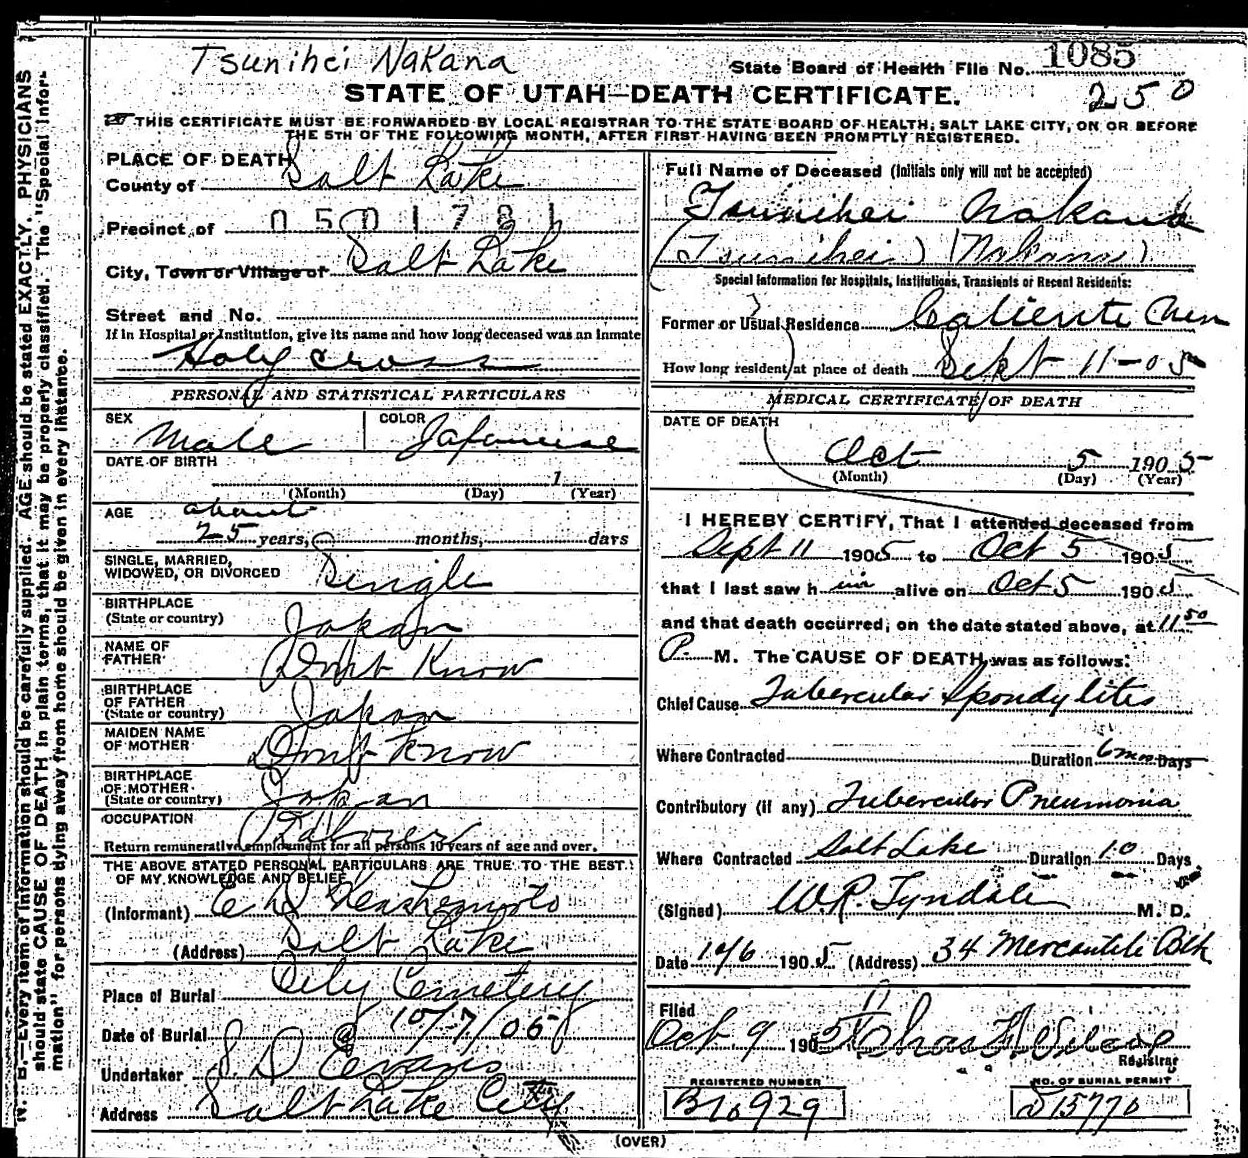 Tsunihei Nakana
State Board of Health File No. 1085
250
STATE OF UTAH—DEATH CERTIFICATE.
THIS CERTIFICATE MUST BE FORWARDED BY LOCAL REGISTRAR TO THE STATE BOARD OF HEALTH, SALT LAKE CITY, ON OR BEFORE
THE 5TH OF THE FOLLOWING MONTH, AFTER FIRST HAVING BEEN PROMPTLY REGISTERED.
PLACE OF DEATH
County of Salt Lake
Precinct of 0501781
City, Town or Village of Salt Lake
Street and No.
If in Hospital or Institution, give its name and how long deceased was an inmate
Holy Cross
PERSONAL AND STATISTICAL PARTICULARS
SEX Male COLOR Japanese
DATE OF BIRTH
1
(Month) (Day) (Year)
AGE about
25 years, months, days
SINGLE, MARRIED,
WIDOWED, OR DIVORCED Single
BIRTHPLACE
(State or country) Japan
NAME OF
FATHER Dont Know
BIRTHPLACE
OF FATHER
(State or country) Japan
MAIDEN NAME
OF MOTHER Dont Know
BIRTHPLACE
OF MOTHER
(State or country) Japan
OCCUPATION Laborer
Return remunerative employment for all persons 10 years of age and over.
THE ABOVE STATED PERSONAL PARTICULARS ARE TRUE TO THE BEST
OF MY KNOWLEDGE AND BELIEF
(Informant) E D
(Address) Salt Lake
Place of Burial City Cemetery
Date of Burial 10/7/05
Undertaker S. D. Evans
Address Salt Lake City
Full Name of Deceased (Initials only will not be accepted)
Tsunihei Nakana
(Tsunihei) (Nakana)
Special Information for Hospitals, Institutions, Transients or Recent Residents:
Former or Usual Residence Caliente
How long resident at place of death Sept 11-05
MEDICAL CERTIFICATE OF DEATH
DATE OF DEATH
Oct 5 1905
(Month) (Day) (Year)
I HEREBY CERTIFY, That I attended deceased from
Sept 11 1905 to Oct 5 1905
that I last saw him alive on Oct 5 1905
and that death occurred, on the date stated above, at 11 50
P. M. The CAUSE OF DEATH was as follows:
Chief Cause Tubercular Spondylites
Where Contracted Duration 6 mo. Days
Contributory (if any) Tubercular Pneumonia
Where Contracted Salt Lake Duration 10 Days
(Signed) W. R. Tyndale M. D.
Date 10/6 1905 (Address) 34 Mercantile Blk
Filed
Oct 9 1905
Registrar
REGISTERED NUMBER NO. OF BURIAL PERMIT
B10929 D15770
(OVER)
N. B.—Every item of information should be carefully supplied. AGE should be stated EXACTLY. PHYSICIANS
should state CAUSE OF DEATH in plain terms, that it may be properly classified. The "Special Infor-
mation" for persons dying away from home should be given in every instance.